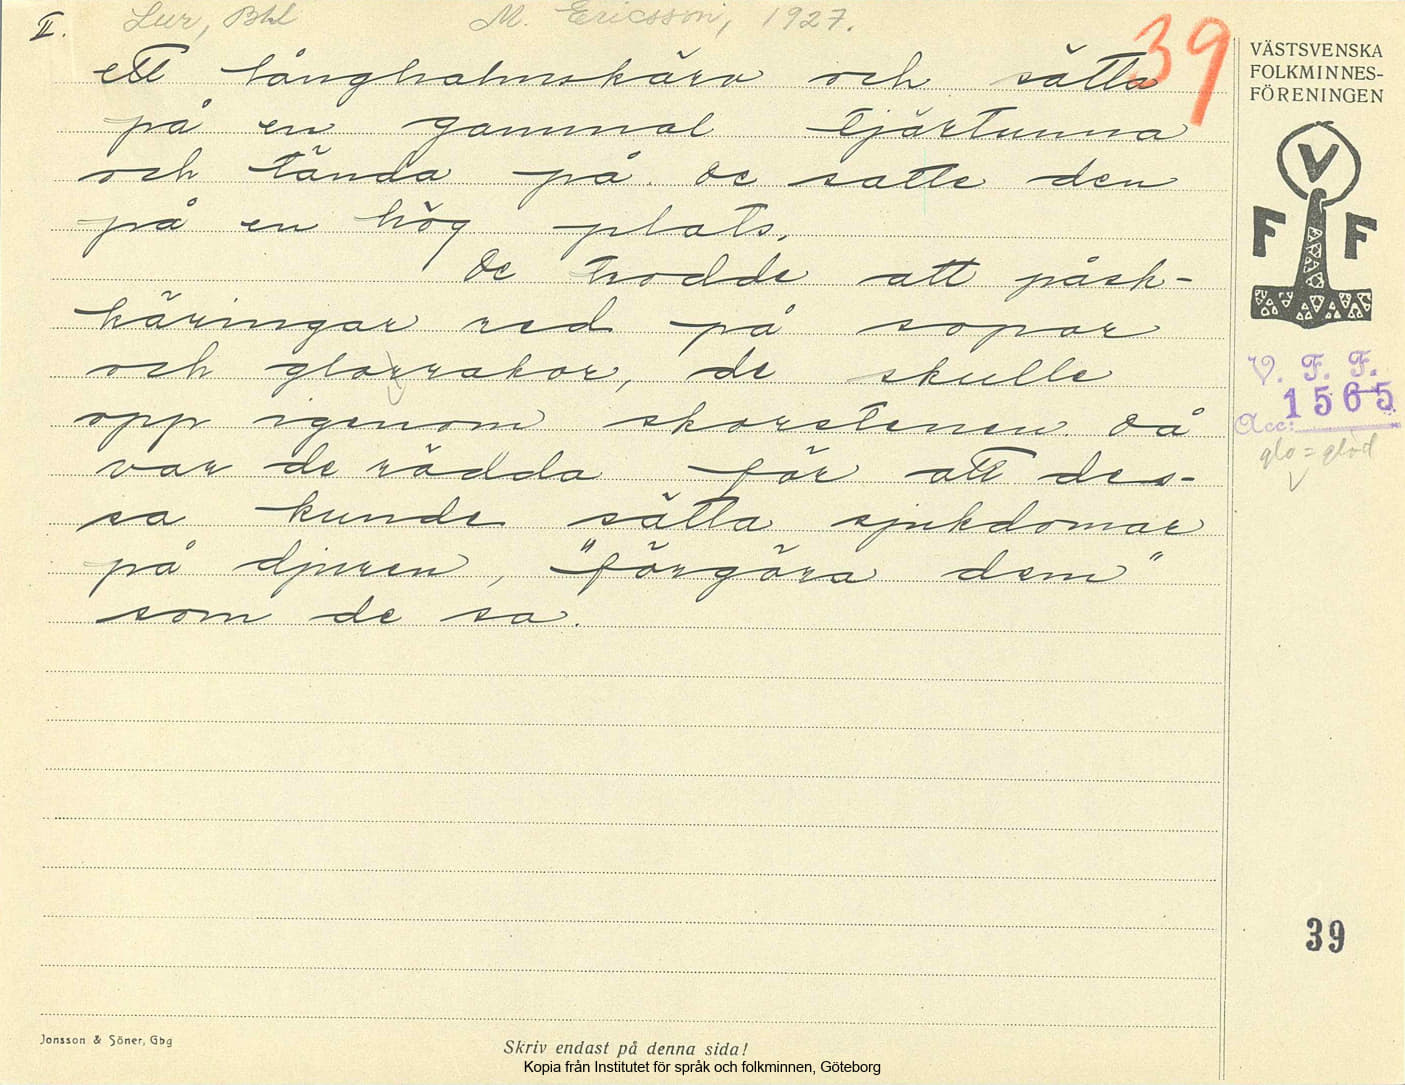 II. Lur, Bhl M. Ericsson, 1927.
39
ett långhalmskärv och sätta
på en gammal tjärtunna
och tända på. De satte den
på en hög plats.
De trodde att påsk-
käringar red på sopar
och glorrakor, de skulle
opp igenom skorstenen. Då
var de rädda för att des-
sa kunde sätta sjukdomar
på djuren, "förgöra dem"
som de sa.
VÄSTSVENSKA
FOLKMINNES-
FÖRENINGEN
V
F F
V. F. F.
Acc: 1565
glo = glöd
39
Jonsson & Söner, Gbg
Skriv endast på denna sida!
Kopia från Institutet för språk och folkminnen, Göteborg